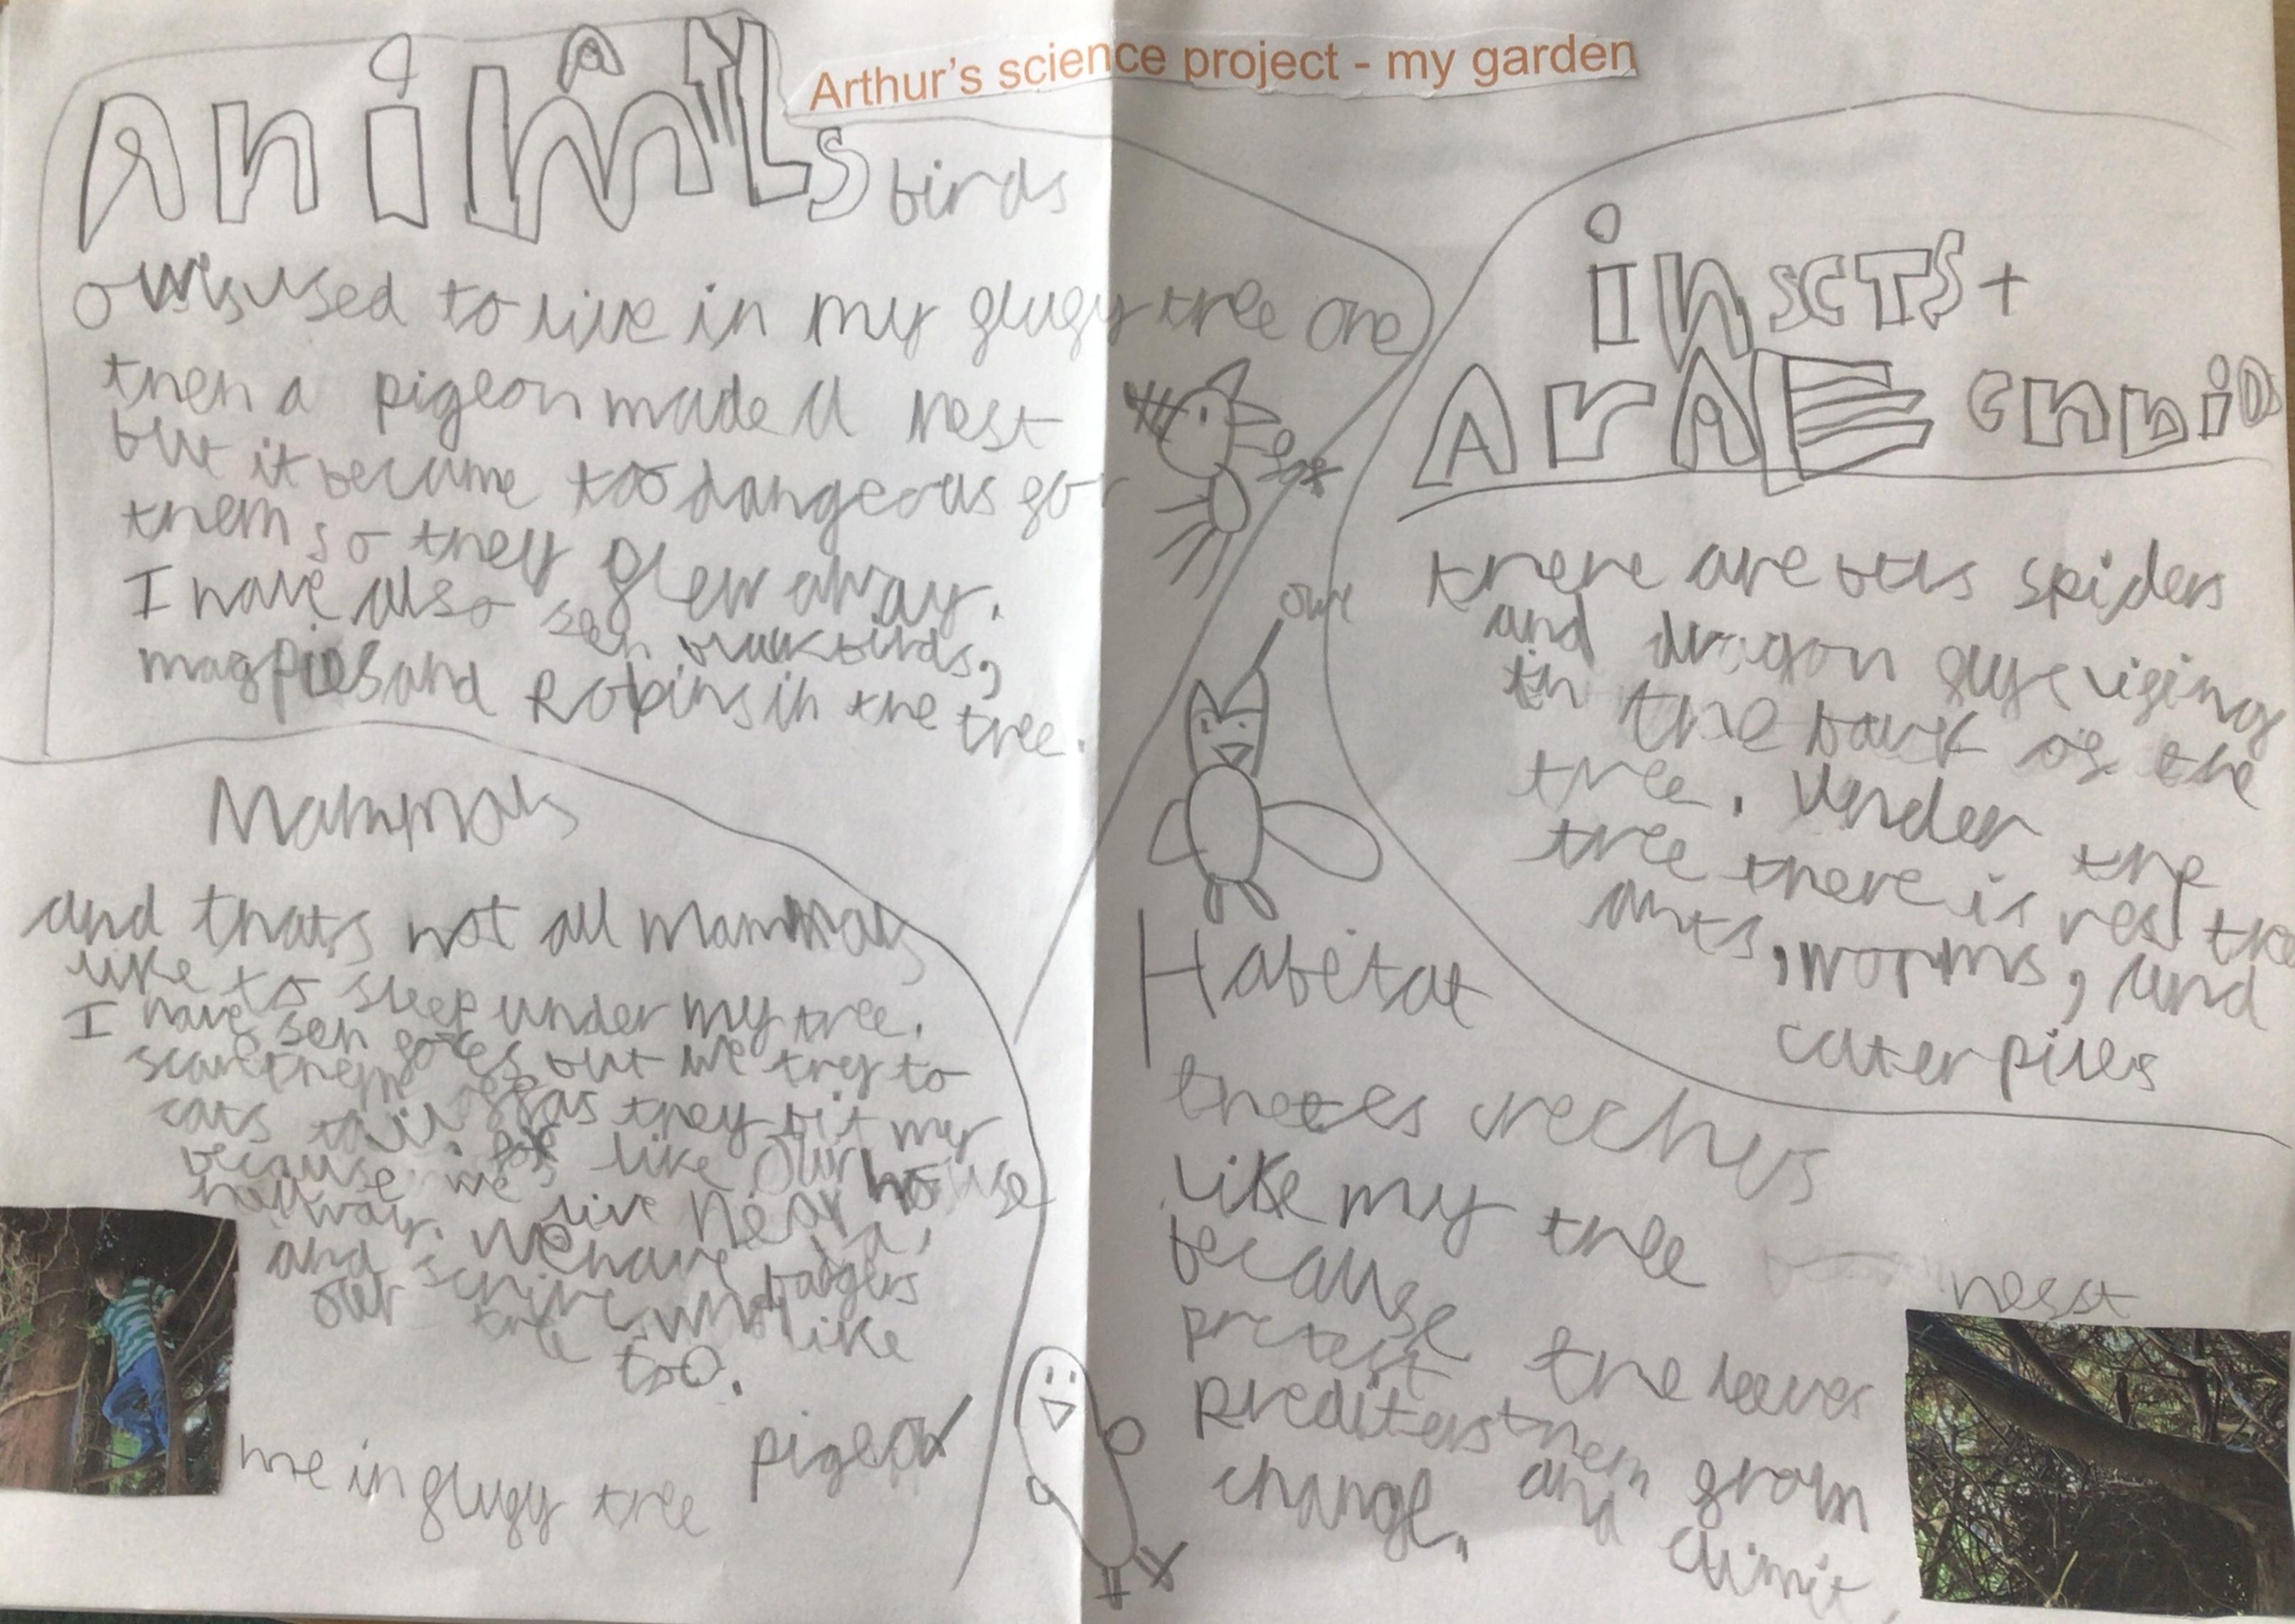 Arthur's science project - my garden
AniMALs birds
owls used to live in my flufy tree one
then a pigeon made a nest
but it became too dangeorus for
them so they flew away.
I have also seh blackbirds,
magpies and Robins in the tree.
Mammals
and thats not all mammals
like to sleep under my tree.
I have seh foxes but we try to
scare them off as they bit my
cats tail.
because we like our house
hallway. we live near a
and shrine we have badgers
our tree too. who like
me in flufy tree
pigeon
owl
inscTS+
ArA cnniDs
there are bees spiders
and dragon flys living
in the bark of the
tree. Under the
tree there is red
ants, worms, and
caterpiles
Habitat
like my tree
because the leeves
pretect them from
prediters and climit
change.
nesst